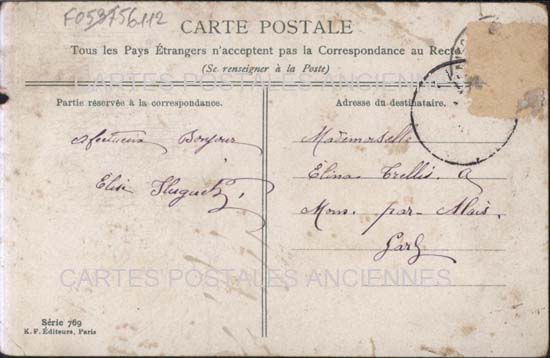 F053756112
CARTE POSTALE
Tous les Pays Étrangers n'acceptent pas la Correspondance au Recto
(Se renseigner à la Poste)
CARTES POSTALES ANCIENNES
Partie réservée à la correspondance.
Adresse du destinataire.
Bonjour
Elise
Mademoiselle
Elina Trellis. a
Mons. par. Alais.
Gard
CARTES POSTALES ANCIENNES
Série 769
K. F. Éditeurs, Paris